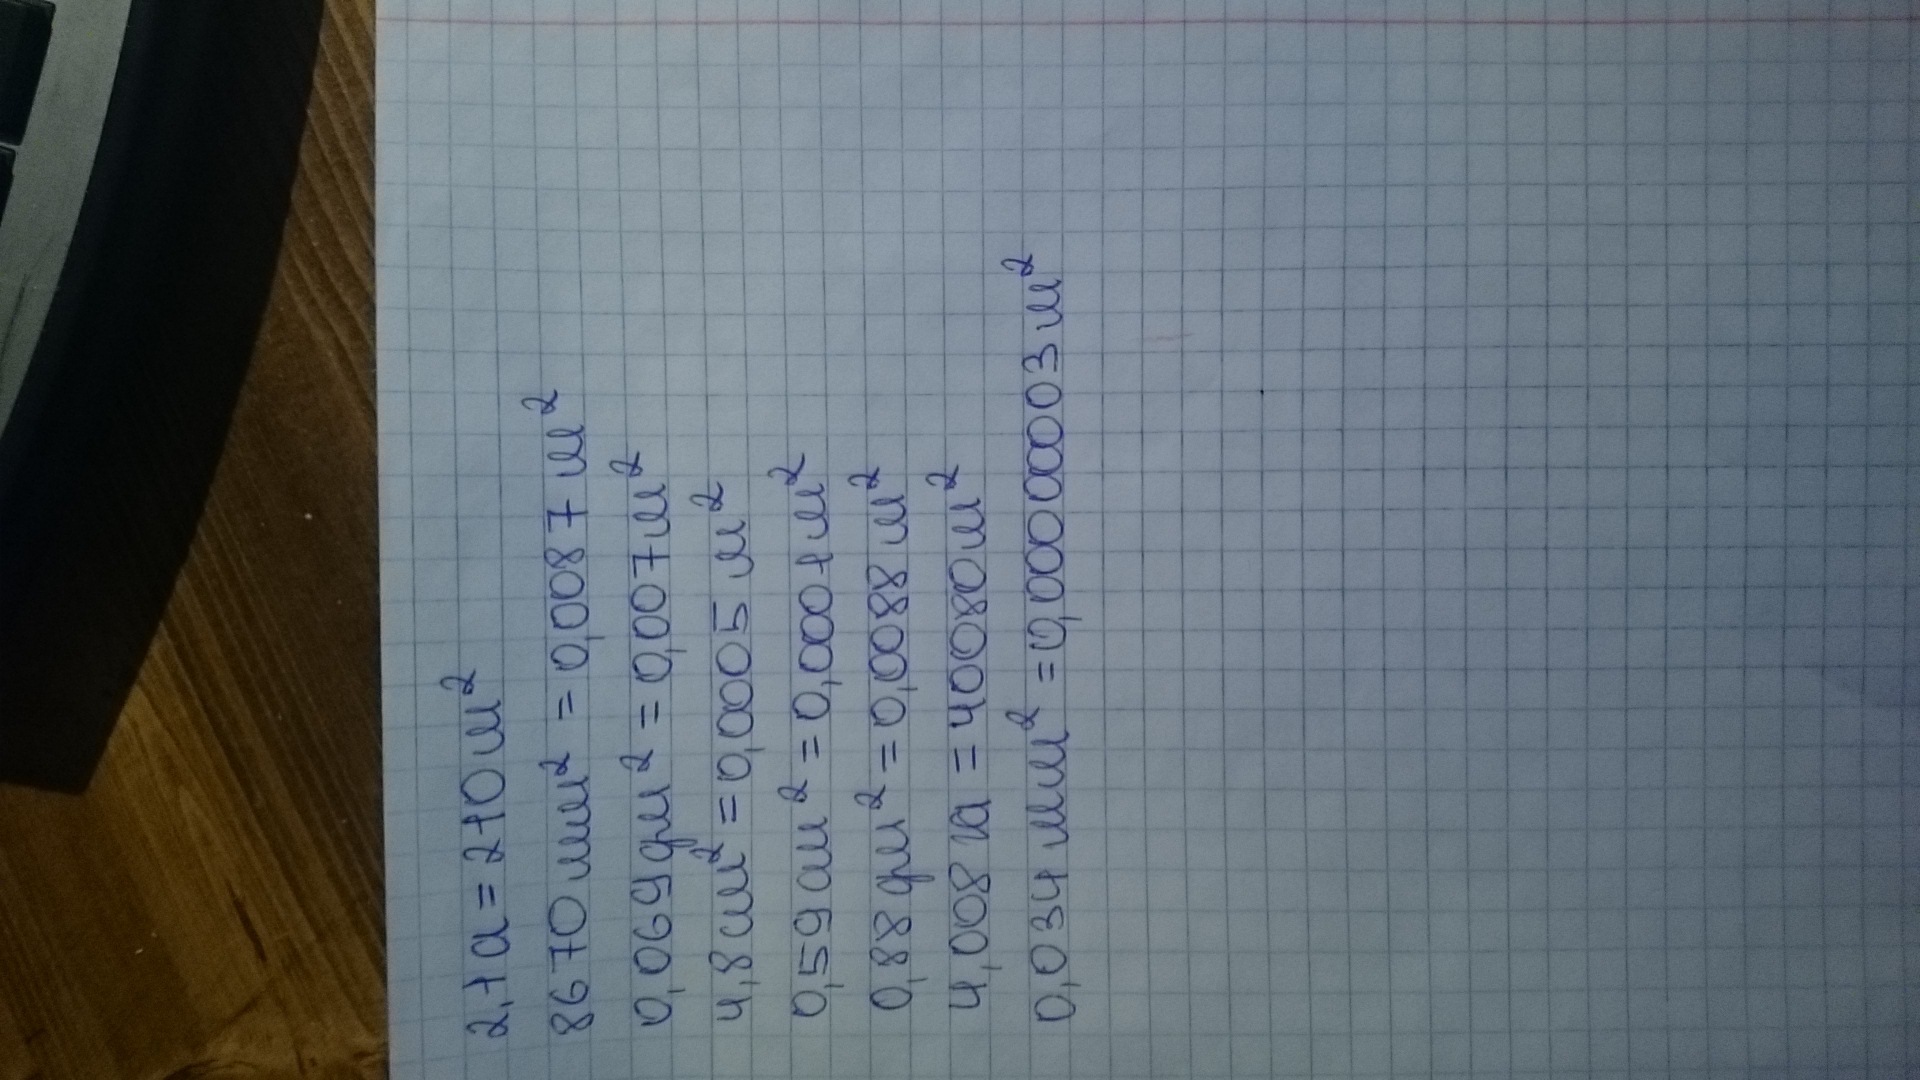 2,1а=210м²
8670мм²=0,0087м²
0,069дм²=0,007м²
4,8см²=0,0005м²
0,59см²=0,0001м²
0,88дм²=0,0088м²
4,008га=40080м²
0,034мм²=0,00000003м²